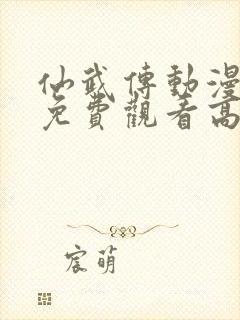 仙武傳動漫
免費觀看高
宸萌